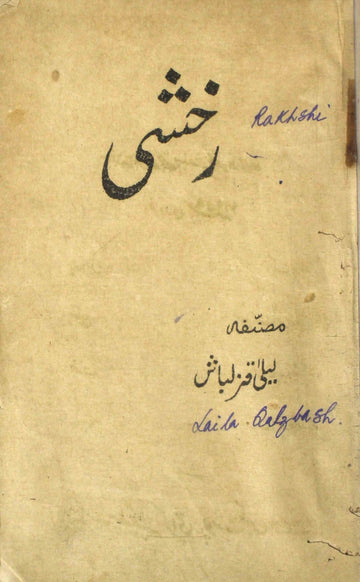 رخشی
Rakhshi
مصنّفہ
لیلیٰ قزلباش
Laila. Qalzbash.